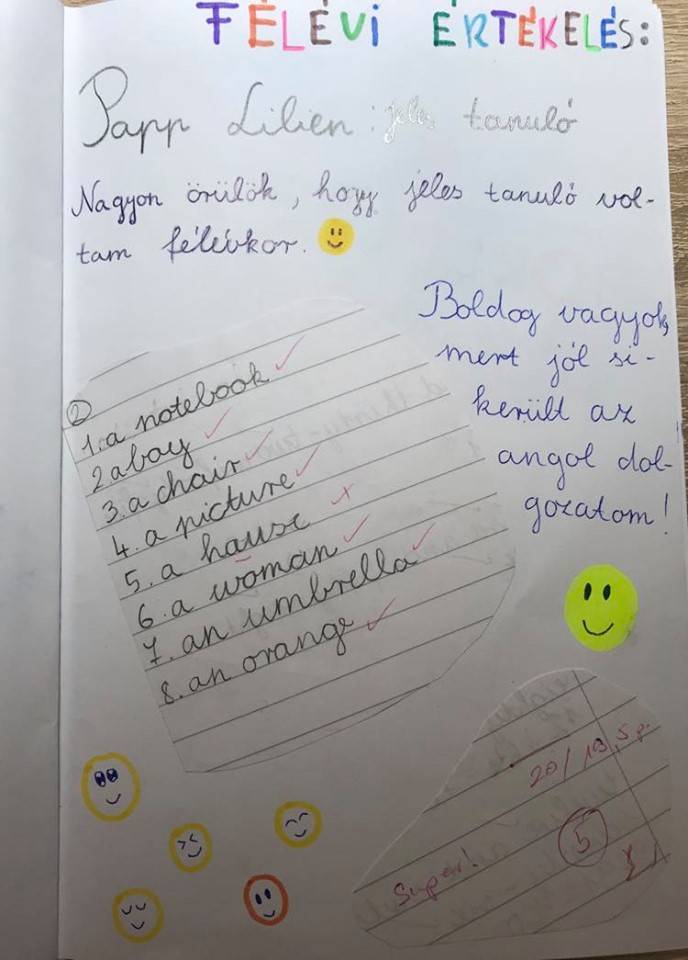 FÉLÉVI ÉRTÉKELÉS:
Papp Lilien: jeles tanuló
Nagyon örülök, hogy jeles tanuló vol-
tam félévkor.
Boldog vagyok,
mert jól si-
került az
angol dol-
gozatom!
2
1. a notebook
2 a boy
3. a chair
4. a picture
5. a hause
6. a woman
7. an umbrella
8. an orange
20/19,5p.
5
Super!